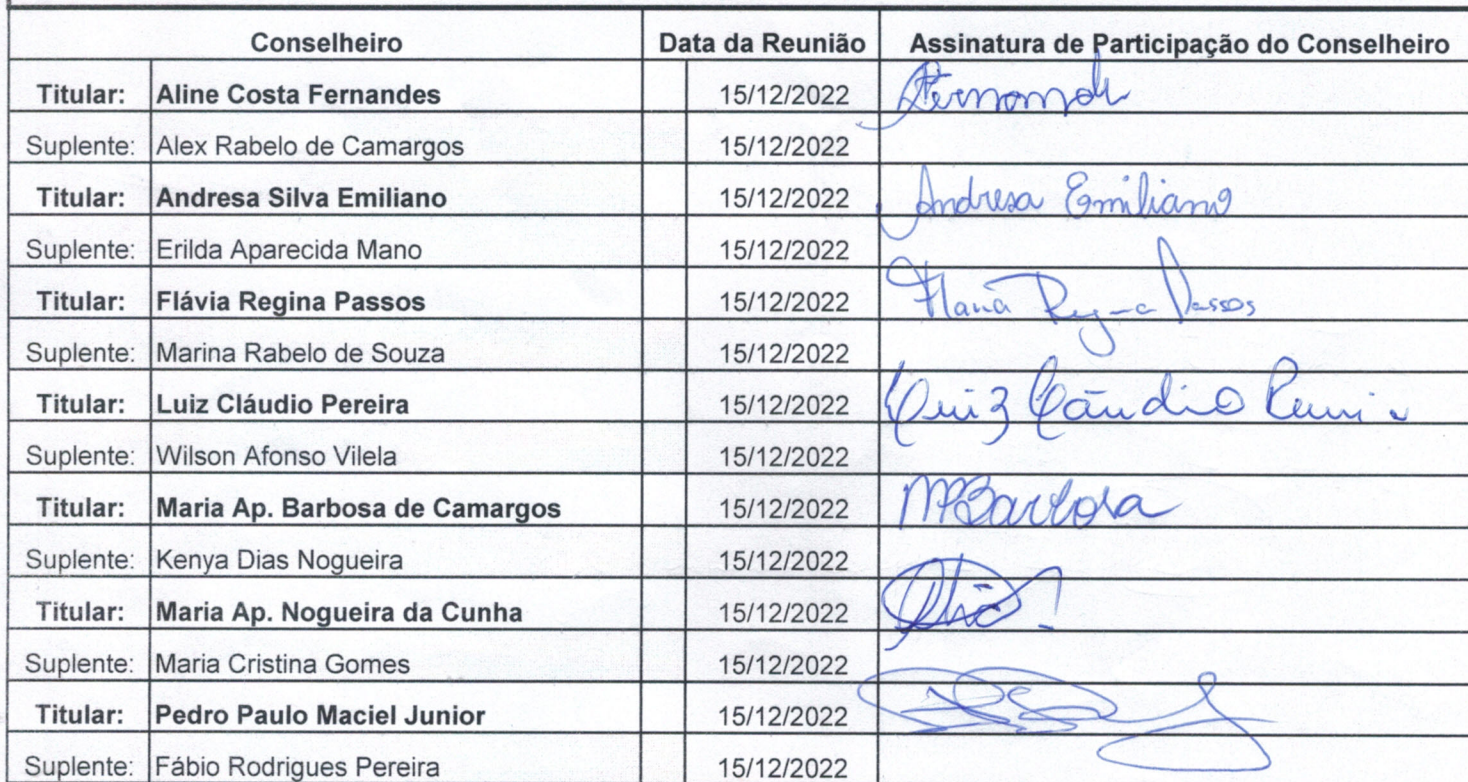 Conselheiro Data da Reunião Assinatura de Participação do Conselheiro
Titular: Aline Costa Fernandes 15/12/2022
Suplente: Alex Rabelo de Camargos 15/12/2022
Titular: Andresa Silva Emiliano 15/12/2022 Andresa Emiliano
Suplente: Erilda Aparecida Mano 15/12/2022
Titular: Flávia Regina Passos 15/12/2022 Passos
Suplente: Marina Rabelo de Souza 15/12/2022
Titular: Luiz Cláudio Pereira 15/12/2022 Luiz
Suplente: Wilson Afonso Vilela 15/12/2022
Titular: Maria Ap. Barbosa de Camargos 15/12/2022 MABarbosa
Suplente: Kenya Dias Nogueira 15/12/2022
Titular: Maria Ap. Nogueira da Cunha 15/12/2022
Suplente: Maria Cristina Gomes 15/12/2022
Titular: Pedro Paulo Maciel Junior 15/12/2022
Suplente: Fábio Rodrigues Pereira 15/12/2022